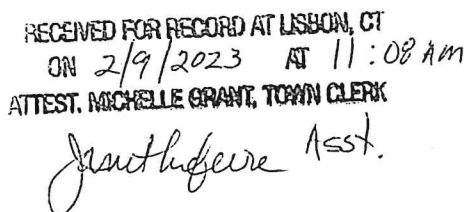 RECEIVED FOR RECORD AT LISBON, CT
ON 2/9/2023 AT 11:08 AM
ATTEST. MICHELLE GRANT, TOWN CLERK
Asst.